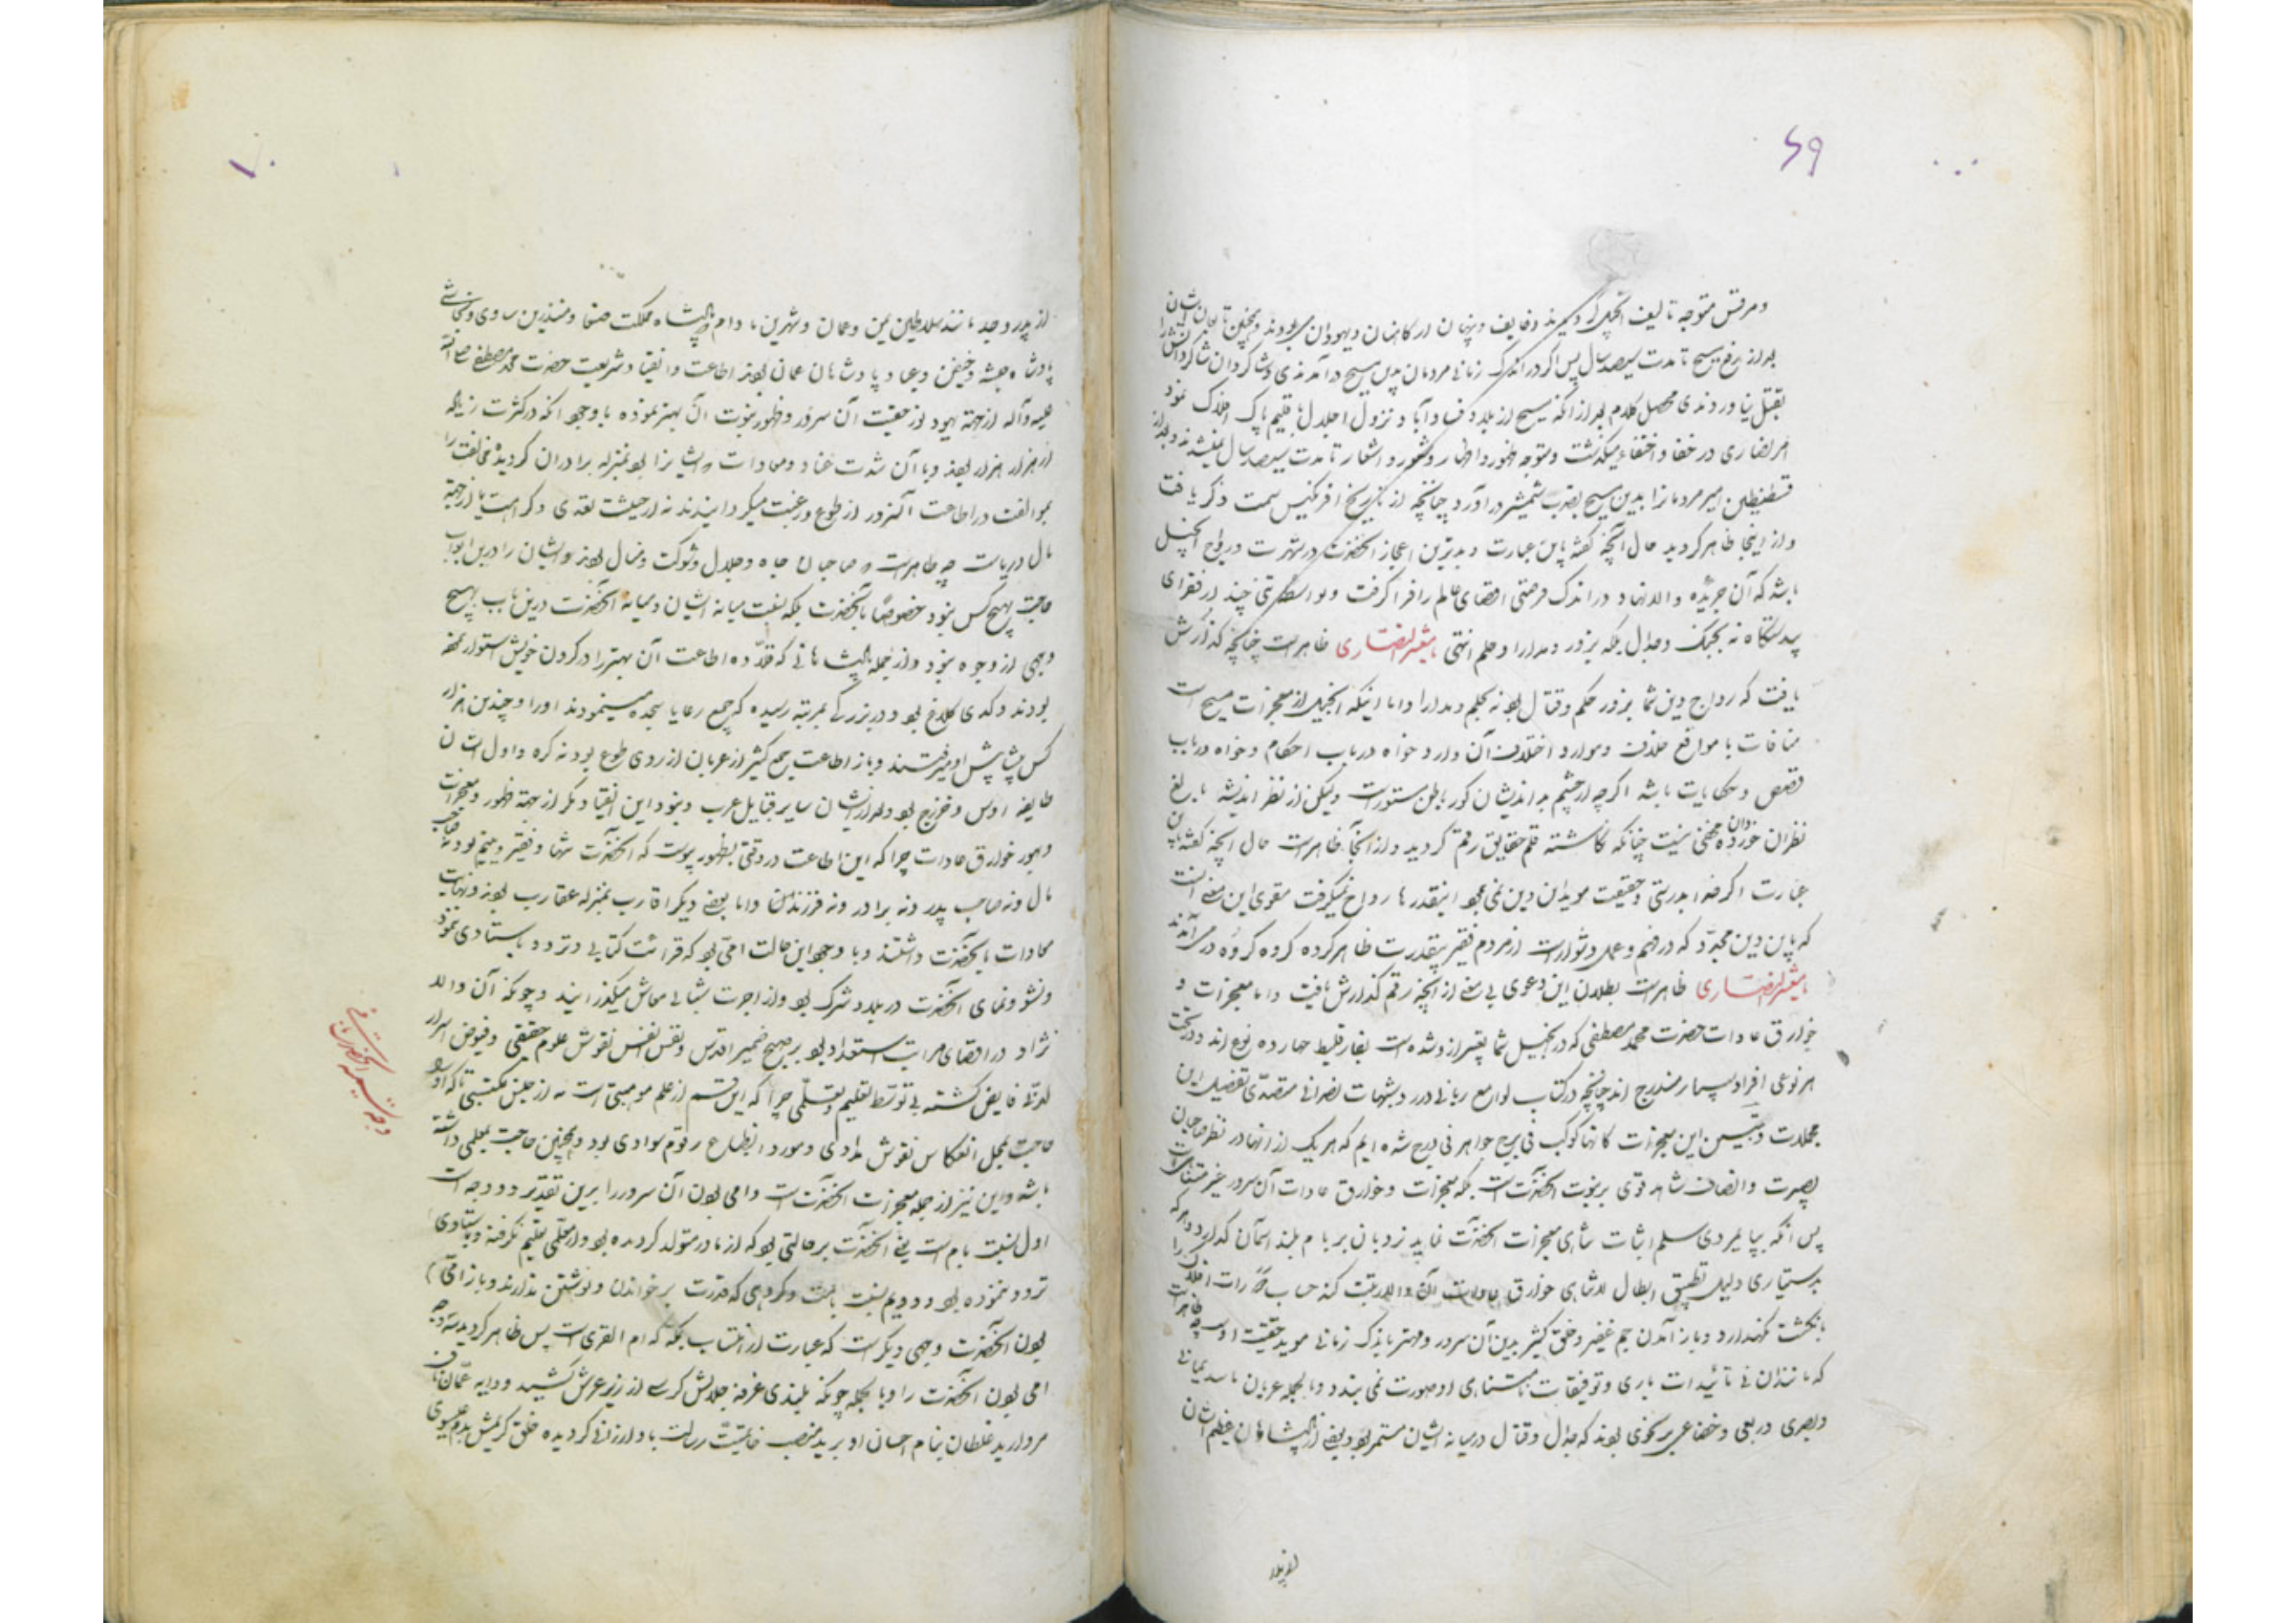 ۶۹
ومرقس متوجه تالیف انجیل
بعد از رفع مسیح تا مدت سیصد سال پس اگر در اندک زمانی مردمان بدین مسیح در آمدندی و شاکردان شاکردانش را
بقتل نیاوردندی محصل کلام بعد از آنکه مسیح از بلاد فساد آباد و نزول اجلال باقلیم پاک افلاک نمود
امر نصاری در خفا و اختفاء میکذشت و متوجه ظهور و اظهار و شعور و اشعار تا مدت سیصد سال نمیشدند و بعد از
قسطنطین امیر مردمانرا بدین مسیح بضرب شمشیر در آورد چنانچه از تاریخ افرنکیس سمت ذکر یافت
و از اینجا ظاهر کردید حال آنچه کفته باین عبارت و بدترین اعجاز آنحضرت در شهرت و رواج انجیل
باشد که آن جریده والانهاد در اندک فرصتی اقصای عالم را فرا کرفت و بواسطه تنی چند از فقرای
بیدستکاه نه بجنک و جدال بلکه بزور و مدارا و حلم انتهی یا معشر النصاری ظاهر است چنانچه کذارش
یافت که رواج دین شما بزور حکم و قتال بود نه بحلم و مدارا و اما اینکه انجیل از معجزات مسیح است
منافات با مواقع خلاف و موارد اختلاف آن دارد خواه در باب احکام و خواه در باب
قصص و حکایات باشد اکرچه از چشم بد اندیشان کور باطن مستور است ولیکن از نظر اندیشه بالغ
نظران خورده دان مخفی نیست چنانکه نکاشته قلم حقایق رقم کردید و از آنجا ظاهر است حال آنچه کفته باین
عبارت اکر خدا بدرستی و حقیقت مؤید این دین نمی بود اینقدرها رواج نمیکرفت مقوی این معنی آنست
که باین دین مجدد که در فهم و عمل دشوار است از مردم فقیر بیقدرت ظاهر کرده کروه کروه در می آمدند
یا معشر النصاری ظاهر است بطلان این دعوی بی معنی از آنچه رقم کذارش یافت و اما معجزات و
خوارق عادات حضرت محمد مصطفی که در انجیل شما تعبیر از و شده است بفارقلیط چهارده نوع اند و در تحت
هر نوعی افراد بسیار مندرج اند چنانچه در کتاب لوامع ربانی در رد شبهات نصرانی متصدی تفصیل این
مجملات و تبیین این معجزات کانها کوکب فی برج جواهر فی درج شده ایم که هر یک از آنها در نظر صاحبان
بصیرت و انصاف شاهد قوی بر نبوت آنحضرت است بلکه معجزات و خوارق عادات آن سرور غیر متناهی است
پس آنکه بپایمردی سلم اثبات تناهی معجزات آنحضرت نماید نردبان بر بام بلند آسمان کذارد و هر که
بدستیاری دلیل تطبیق ابطال لاتناهی خوارق عادات آن والا رتبت کند حساب ذرات افلاک را
بانکشت نکهدارد و باز آمدن جم غفیر و خلق کثیر بدین آن سرور و مهتر باندک زمانی مؤید حقیت اوست چه ظاهر است
که مانند آن بی تائیدات باری و توفیقات نامتناهی او صورت نمی بندد و بالجمله عربان
و بصری در بعی و خضا عی بر نحوی بودند که جدال و قتال در میانه ایشان مستمر بود و بعضی از پادشاهان عظیم الشان
از پدر و جد مانند سلاطین یمن و عمان و شهرین بادام پادشاه مملکت صنعا و منذر بن ساوی و نجاشی
پادشاه حبشه و جیفر و عباد پادشاهان عمان بودند اطاعت و انقیاد شریعت حضرت محمد مصطفی صلی الله
علیه و آله از جهة بهبود نور حقیت آن سرور و ظهور نبوت آن بهتر نموده با وجود آنکه در کثرت زیاده
از هزار هزار بودند و با آن شدت عناد و معادات ایشانرا بمنزله برادران کردیده مخالفت را
بموالفت در اطاعت آنسرور از طوع و رغبت میکردانیدند نه از حیثیت تعدی و کراهت یا از جهة
مال و ریاست چه ظاهر است که صاحبان جاه و جلال و شوکت و منال بودند و ایشان را درین ابواب
حاجت بهیچ کس نبود خصوصا بآنحضرت بلکه نسبت میانه ایشان و میانه آنحضرت درین باب بهیچ
وجهی از وجوه نبود و از جمله پادشاهانی که قلاده اطاعت آن بهتر را در کردن خویش استوار نموده
بودند و در بزرکی بمرتبه رسیده که جمیع رعایا سجده مینمودند او را و چندین هزار
کس پیشاپیش او میرفتند و باز اطاعت جمع کثیر از عربان از روی طوع بود نه کره و اول ایشان
طایفه اوس و خزرج بود و بعد از ایشان سایر قبایل عرب و نبود این انقیاد مکر از جهة ظهور معجزات
و بهور خوارق عادات چرا که این اطاعت در وقتی بظهور پیوست که آنحضرت تنها و فقیر و یتیم بود نه صاحب
مال و نه صاحب پدر و نه برادر و نه فرزندان و اما بعضی دیکر اقارب بمنزله عقارب بودند و نهایت
معادات بآنحضرت داشتند و با وجود این حالت امی بود که قرائت کتابی و تردد باستادی ننمود
و نشو و نمای آنحضرت در بلاد شرک بود و از اجرت شبانی معاش میکذرانید و چونکه آن والا
نژاد در اقصای مراتب استعداد بود بر صحیح ضمیر اقدس و نفس انفس نقوش علوم حقیقی و فیوض اسرار
لدنی فایض کشته بی توسط تعلیم و تعلمی چرا که این قسم از علم موهبتی است نه از جنس مکتسبی تا که او را
حاجت بمحل انعکاس نقوش مدادی و مورد انطباع رقوم سوادی بود و همچنین حاجت بمعلمی داشته
باشد و این نیز از جمله معجزات آنحضرت است و امی بودن آن سرور را برین تقدیر دو وجه است
اول نسبت بام است یعنی آنحضرت بر حالتی بود که از مادر متولد کردیده بود و از معلمی تعلیم نکرفته و باستادی
تردد ننموده بود و دویم نسبت بامت و کروهی که قدرت بر خواندن و نوشتن ندارند و باز امی
بودن آنحضرت وجهی دیکر است که عبارت از انتساب بمکه که ام القری است پس ظاهر کردید سه وجه
امی بودن آنحضرت را و بالجمله چونکه بلندی غرفه جلالش کرسی از زیر عرش کشید و دایه عمان
مروارید غلطان بنام احسان او برید منصب خاتمیت رسالت باو ارزانی کردیده خلق کریمش بدم عیسوی
وجه تسمیه آنحضرت بامی